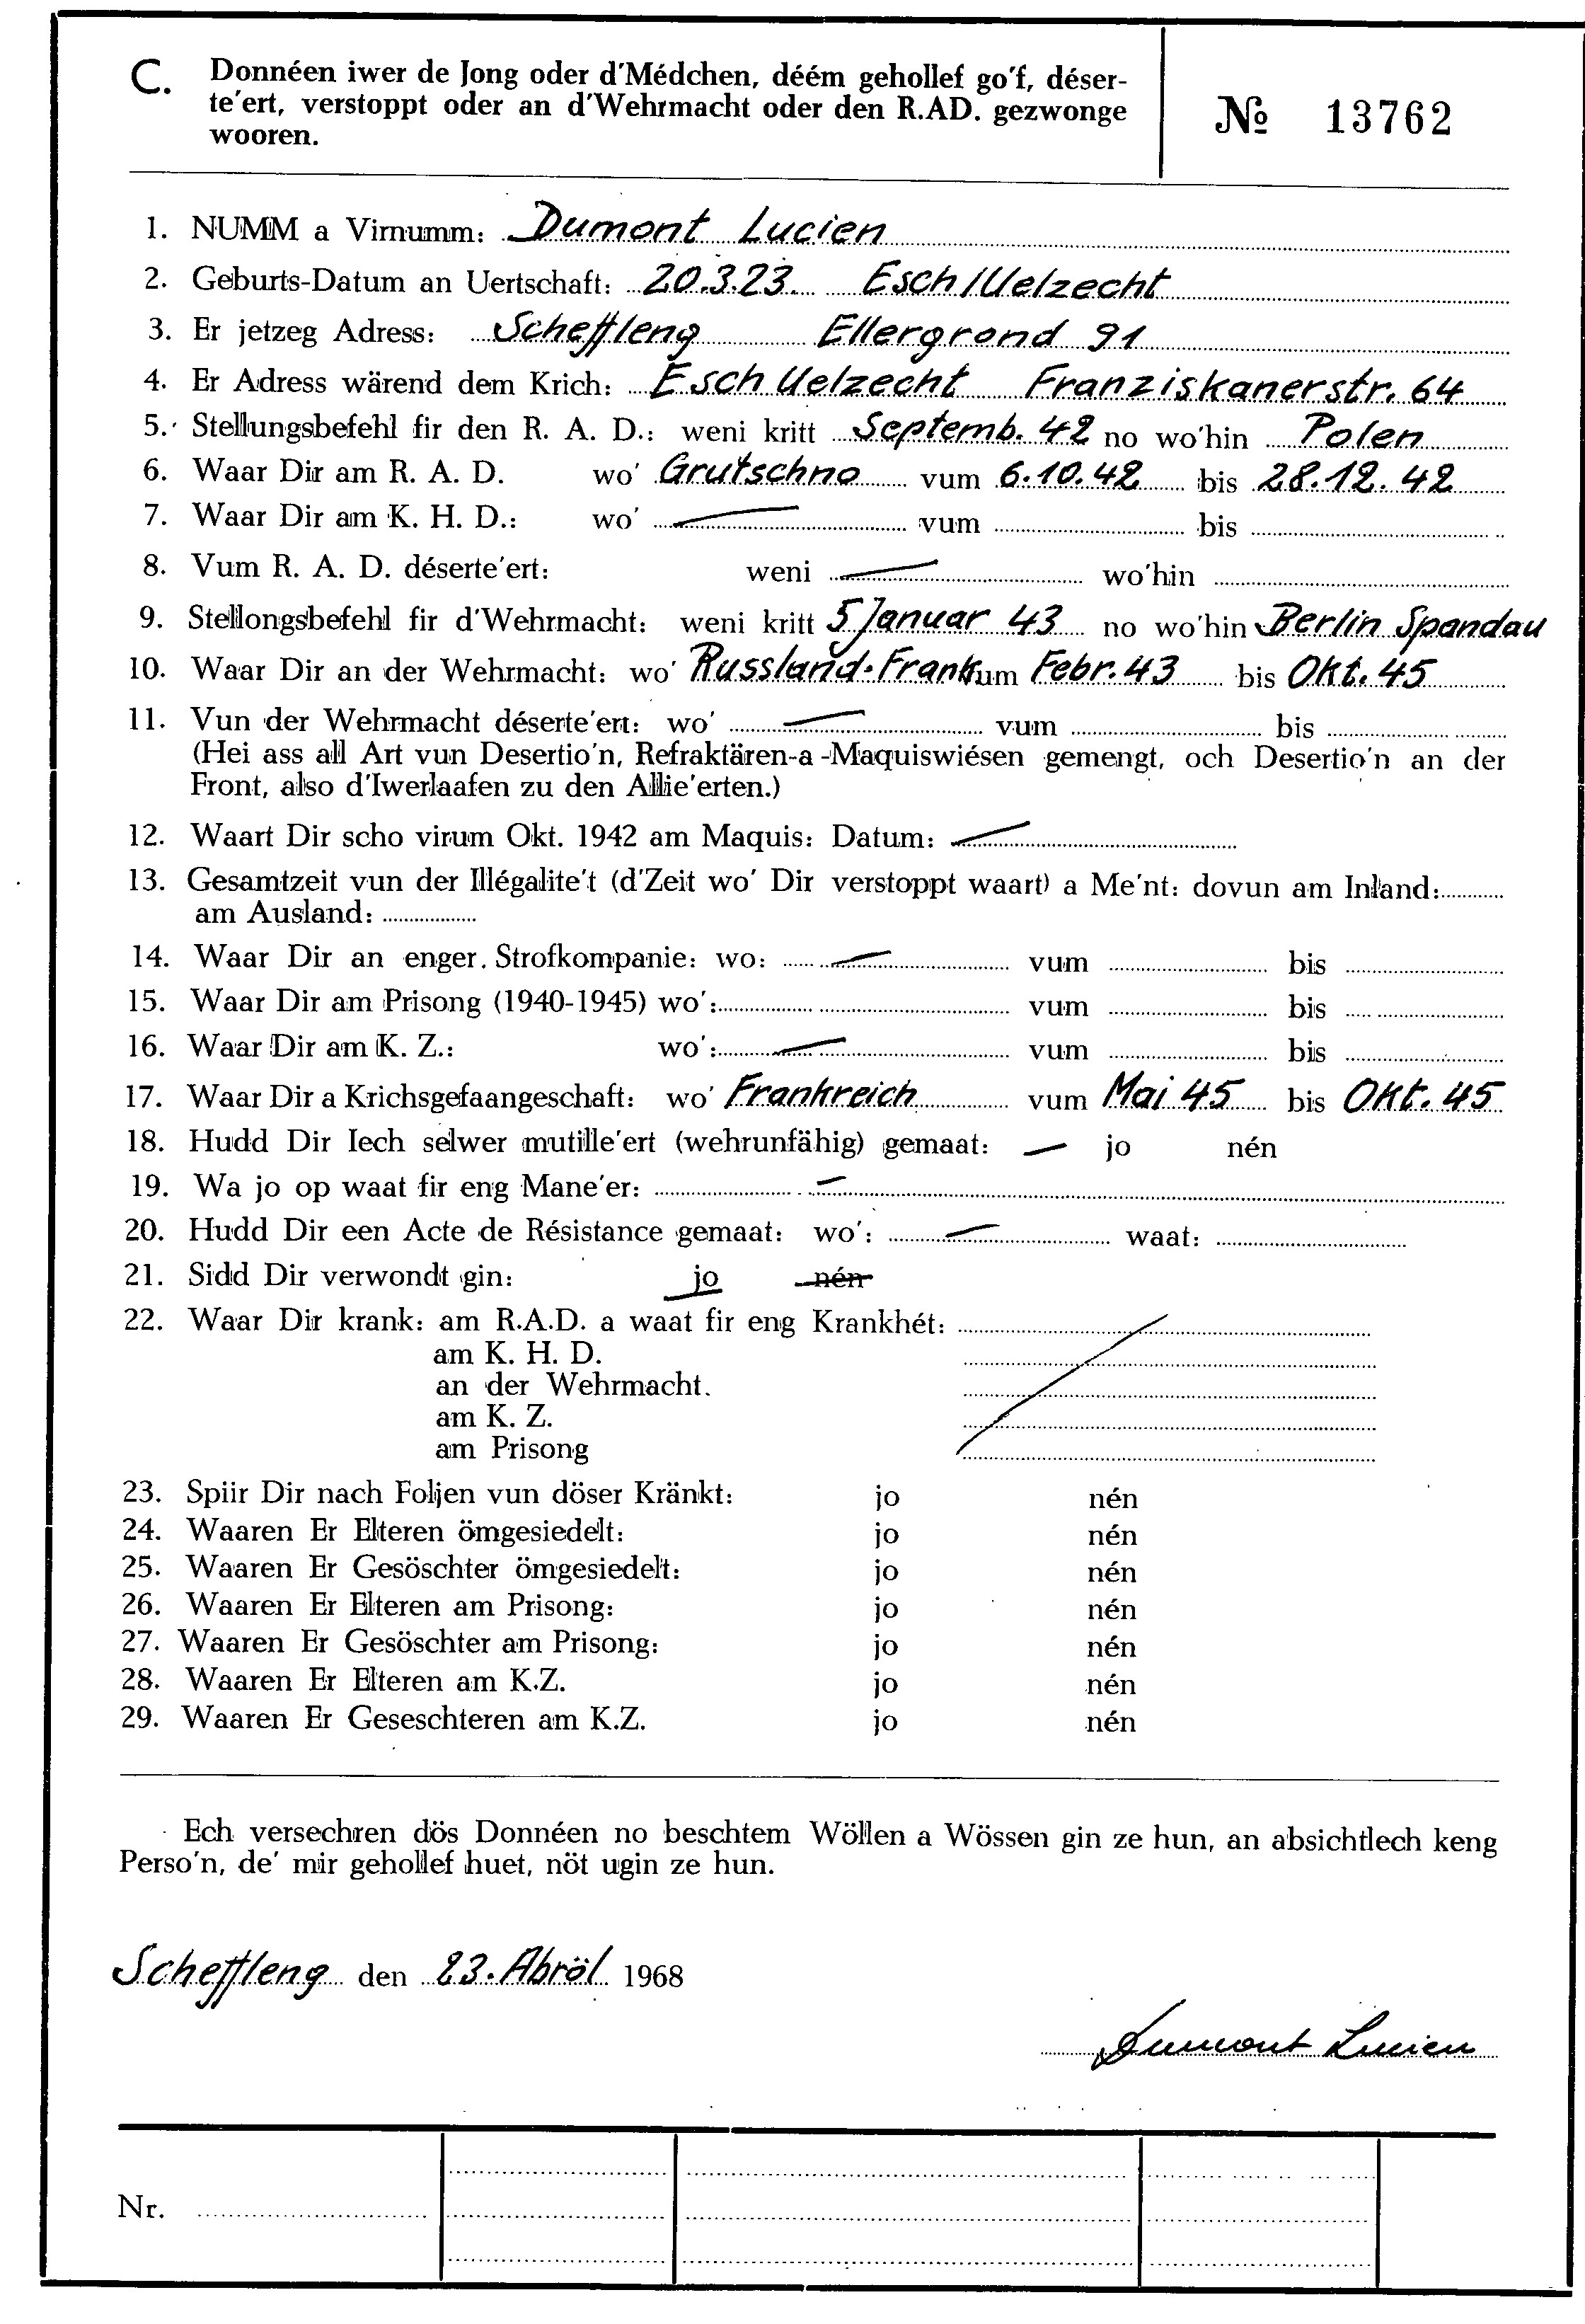 C. Donnéen iwer de Jong oder d'Médchen, déém gehollef go'f, déser-
te'ert, verstoppt oder an d'Wehrmacht oder den R.AD. gezwonge
wooren.
№ 13762
1. NUMM a Virnumm: Dumont Lucien
2. Geburts-Datum an Uertschaft: 20.3.23. Esch/Uelzecht
3. Er jetzeg Adress: Scheffleng Ellergrond 91
4. Er Adress wärend dem Krich: Esch Uelzecht Franziskanerstr. 64
5. Stellungsbefehl fir den R. A. D.: weni kritt Septemb. 42 no wo'hin Polen
6. Waar Dir am R. A. D. wo' Grutschno vum 6.10.42 bis 28.12.42
7. Waar Dir am K. H. D.: wo' vum bis
8. Vum R. A. D. déserte'ert: weni wo'hin
9. Stellongsbefehl fir d'Wehrmacht: weni kritt 5 Januar 43 no wo'hin Berlin Spandau
10. Waar Dir an der Wehrmacht: wo' Russland. Frank vum Febr. 43 bis Okt. 45
11. Vun der Wehrmacht déserte'ert: wo' vum bis
(Hei ass all Art vun Desertio'n, Refraktären-a-Maquiswiésen gemengt, och Desertio'n an der
Front, also d'Iwerlaafen zu den Allie'erten.)
12. Waart Dir scho virum Okt. 1942 am Maquis: Datum:
13. Gesamtzeit vun der Illégalite't (d'Zeit wo' Dir verstoppt waart) a Me'nt: dovun am Inland:
am Ausland:
14. Waar Dir an enger Strofkompanie: wo: vum bis
15. Waar Dir am Prisong (1940-1945) wo': vum bis
16. Waar Dir am K. Z.: wo': vum bis
17. Waar Dir a Krichsgefaangeschaft: wo' Frankreich vum Mai 45 bis Okt. 45
18. Hudd Dir Iech selwer mutille'ert (wehrunfähig) gemaat: jo nén
19. Wa jo op waat fir eng Mane'er:
20. Hudd Dir een Acte de Résistance gemaat: wo': waat:
21. Sidd Dir verwondt gin: jo nén
22. Waar Dir krank: am R.A.D. a waat fir eng Krankhét:
am K. H. D.
an der Wehrmacht.
am K. Z.
am Prisong
23. Spiir Dir nach Foljen vun döser Kränkt: jo nén
24. Waaren Er Elteren ömgesiedelt: jo nén
25. Waaren Er Gesöschter ömgesiedelt: jo nén
26. Waaren Er Elteren am Prisong: jo nén
27. Waaren Er Gesöschter am Prisong: jo nén
28. Waaren Er Elteren am K.Z. jo nén
29. Waaren Er Geseschteren am K.Z. jo nén
Ech versechren dös Donnéen no beschtem Wöllen a Wössen gin ze hun, an absichtlech keng
Perso'n, de' mir gehollef huet, nöt ugin ze hun.
Scheffleng den 23. Abröl 1968
Dumont Lucien
Nr.